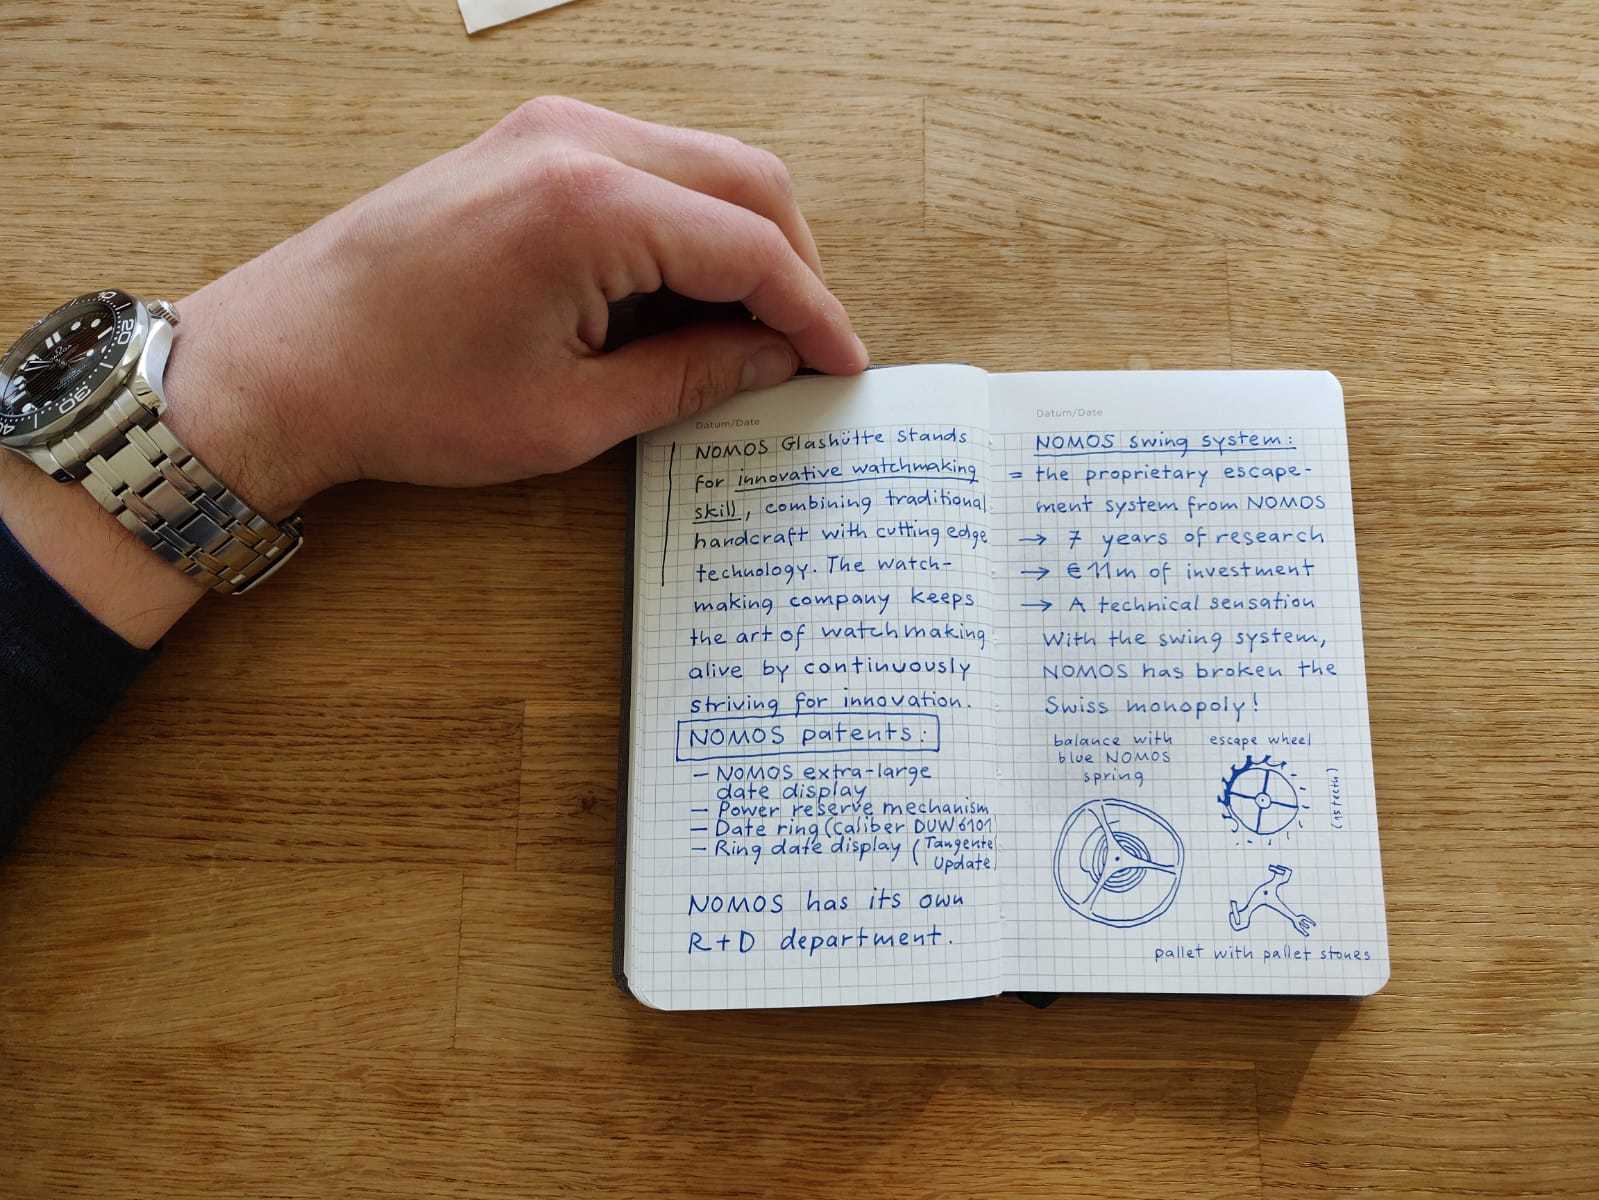 Datum/Date
NOMOS Glashütte stands
for innovative watchmaking
skill, combining traditional
handcraft with cutting edge
technology. The watch-
making company keeps
the art of watchmaking
alive by continuously
striving for innovation.
NOMOS patents:
— NOMOS extra-large
date display
— Power reserve mechanism
— Date ring (Caliber DUW 6101)
— Ring date display (Tangente
Update)
NOMOS has its own
R+D department.
Datum/Date
NOMOS swing system:
= the proprietary escape-
ment system from NOMOS
→ 7 years of research
→ €11m of investment
→ A technical sensation
With the swing system,
NOMOS has broken the
Swiss monopoly!
balance with
blue NOMOS
spring
escape wheel
(15 teeth)
pallet with pallet stones
20
30
40
OMEGA